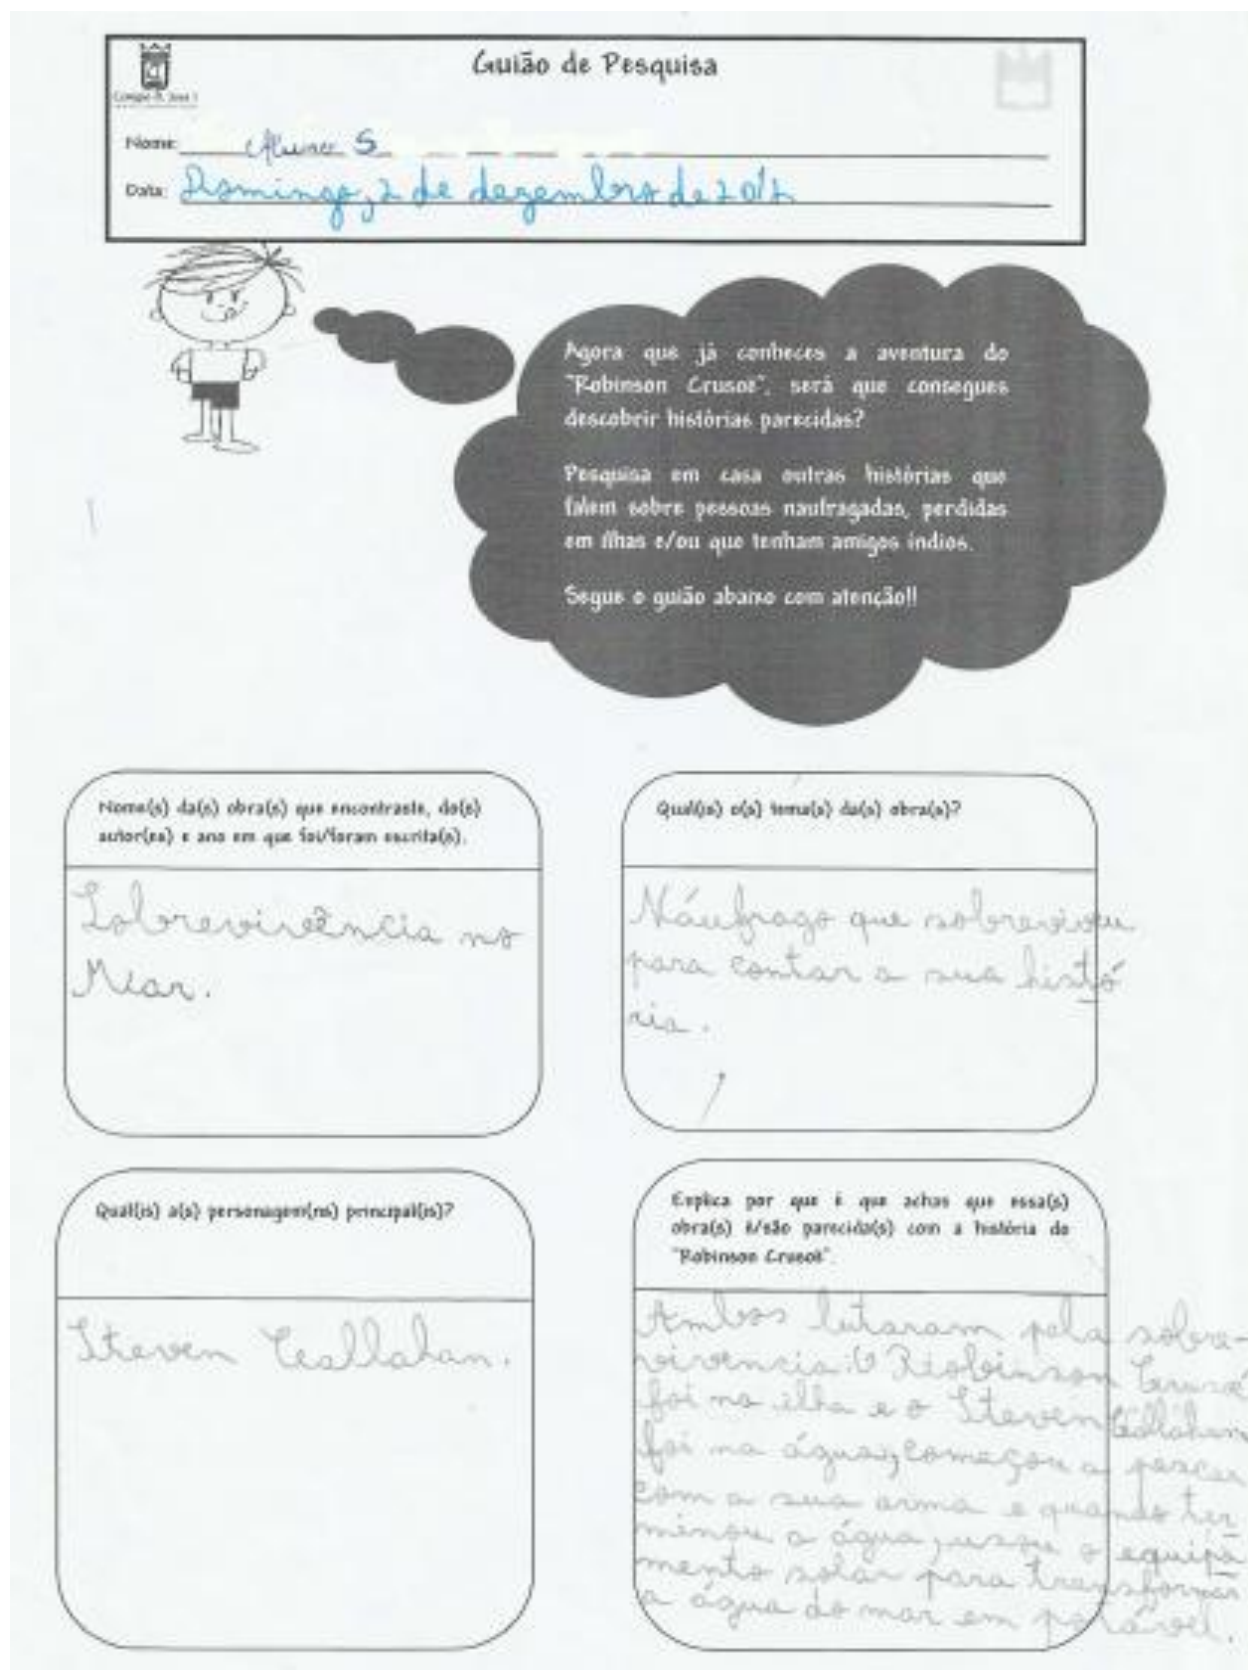 Guião de Pesquisa
Colégio D. José I
Nome: Aluno S
Data: Domingo, 2 de dezembro de 2012
Agora que já conheces a aventura do
"Robinson Crusoé", será que consegues
descobrir histórias parecidas?
Pesquisa em casa outras histórias que
falem sobre pessoas naufragadas, perdidas
em ilhas e/ou que tenham amigos índios.
Segue o guião abaixo com atenção!!
Nome(s) da(s) obra(s) que encontraste, do(s)
autor(es) e ano em que foi/foram escrita(s).
Sobrevivência no
Mar.
Qual(is) o(s) tema(s) da(s) obra(s)?
Náufrago que sobreviveu
para contar a sua histó
ria.
Qual(is) a(s) personagem(ns) principal(is)?
Steven Callahan.
Explica por que é que achas que essa(s)
obra(s) é/são parecida(s) com a história do
"Robinson Crusoé".
Ambos lutaram pela sobre-
vivencia. O Robinson Crusoé
foi na ilha e o Steven Callahan
foi na água, começou a pescar
com a sua arma e quando ter
minou a água, usou o equipa
mento solar para transformar
a água do mar em potável.